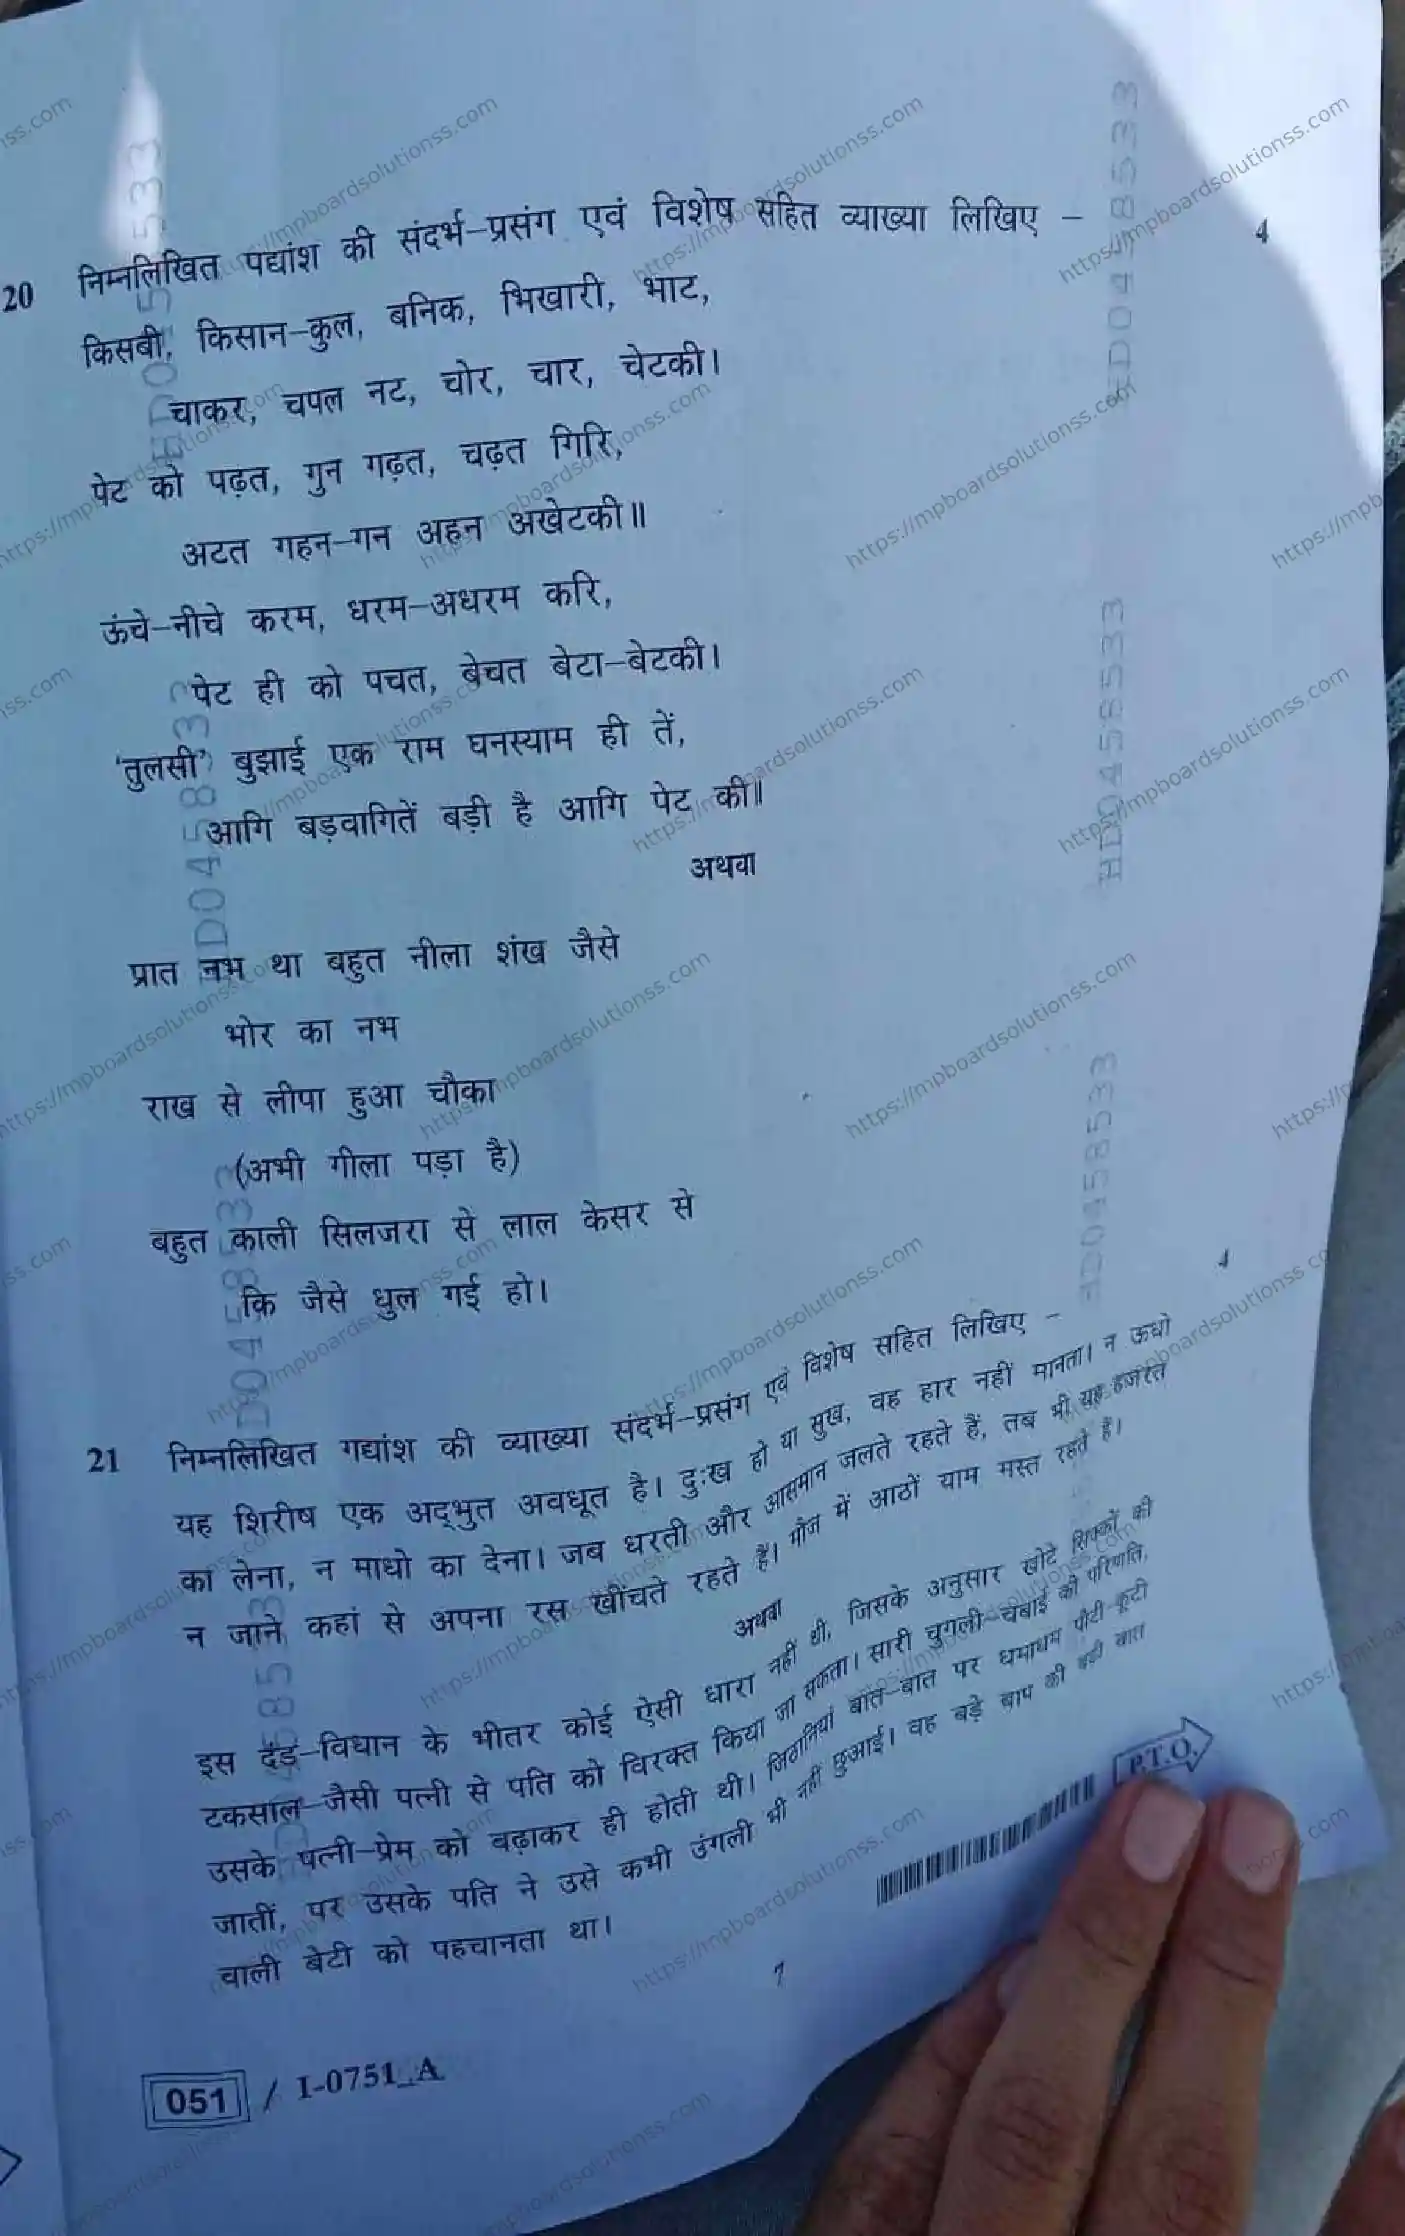 20 निम्नलिखित पद्यांश की संदर्भ-प्रसंग एवं विशेष सहित व्याख्या लिखिए - 4
किसबी, किसान-कुल, बनिक, भिखारी, भाट,
चाकर, चपल नट, चोर, चार, चेटकी।
पेट को पढ़त, गुन गढ़त, चढ़त गिरि,
अटत गहन-गन अहन अखेटकी॥
ऊंचे-नीचे करम, धरम-अधरम करि,
पेट ही को पचत, बेचत बेटा-बेटकी।
'तुलसी' बुझाई एक राम घनस्याम ही तें,
आगि बड़वागितें बड़ी है आगि पेट की॥
अथवा
प्रात नभ था बहुत नीला शंख जैसे
भोर का नभ
राख से लीपा हुआ चौका
(अभी गीला पड़ा है)
बहुत काली सिलजरा से लाल केसर से
कि जैसे धुल गई हो।
21 निम्नलिखित गद्यांश की व्याख्या संदर्भ-प्रसंग एवं विशेष सहित लिखिए - 4
यह शिरीष एक अद्भुत अवधूत है। दुःख हो या सुख, वह हार नहीं मानता। न ऊधो
का लेना, न माधो का देना। जब धरती और आसमान जलते रहते हैं, तब भी यह हजरत
न जाने कहां से अपना रस खींचते रहते हैं। मौज में आठों याम मस्त रहते हैं।
अथवा
इस दंड-विधान के भीतर कोई ऐसी धारा नहीं थी, जिसके अनुसार खोटे सिक्कों की
टकसाल-जैसी पत्नी से पति को विरक्त किया जा सकता। सारी चुगली-चबाई की परिणति,
उसके पत्नी-प्रेम को बढ़ाकर ही होती थी। जिठानियां बात-बात पर धमाधम पीटी-कूटी
जातीं, पर उसके पति ने उसे कभी उंगली भी नहीं छुआई। वह बड़े बाप की बड़ी बात
वाली बेटी को पहचानता था।
P.T.O.
7
051 / I-0751_A
HD0458533
https://mpboardsolutionss.com